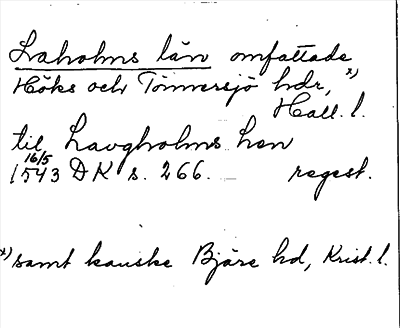 Laholms län omfattade
Höks och Tönnersjö hdr, x)
Hall. l.
til Lavgholms hen
16/5
1543 DK s. 266. regest.
x) samt kanske Bjäre hd, Krist. l.